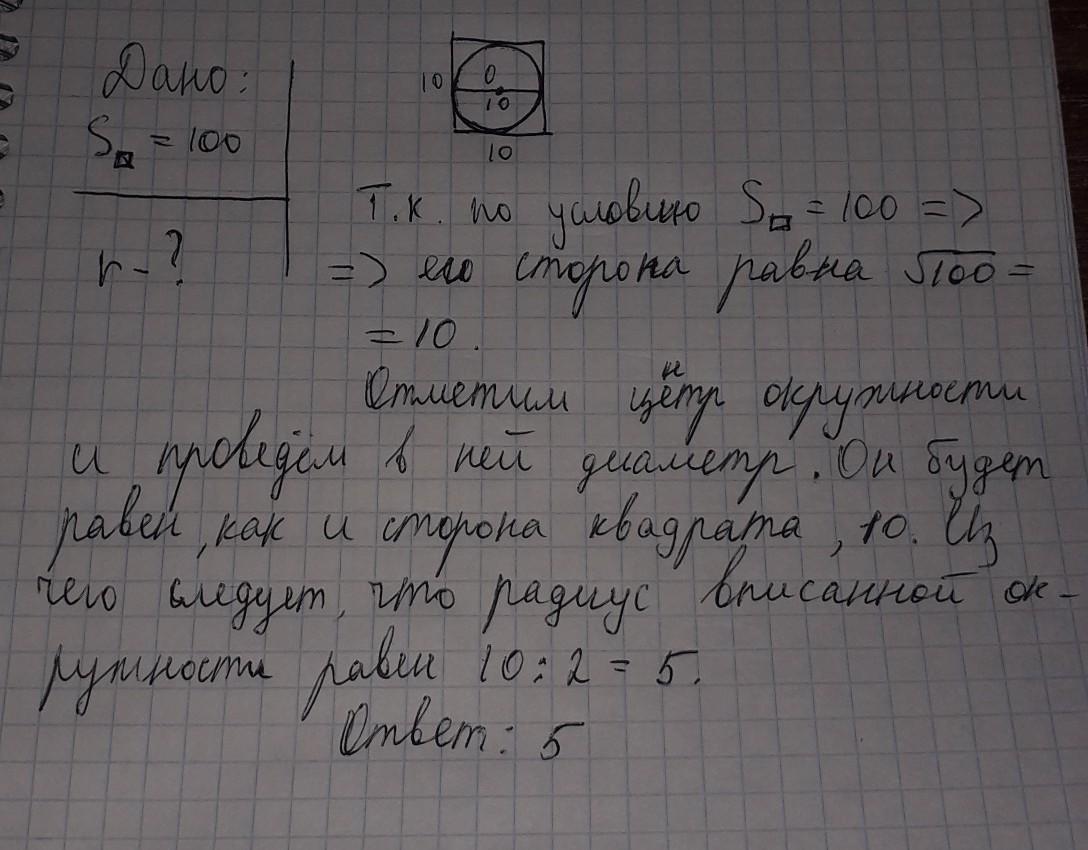 Дано:
S□ = 100
r - ?
10
O
10
10
Т.к. по условию S□ = 100 =>
=> его сторона равна √100 =
= 10.
Отметим центр окружности
и проведём в ней диаметр. Он будет
равен, как и сторона квадрата, 10. Из
чего следует, что радиус вписанной ок-
ружности равен 10 : 2 = 5.
Ответ: 5